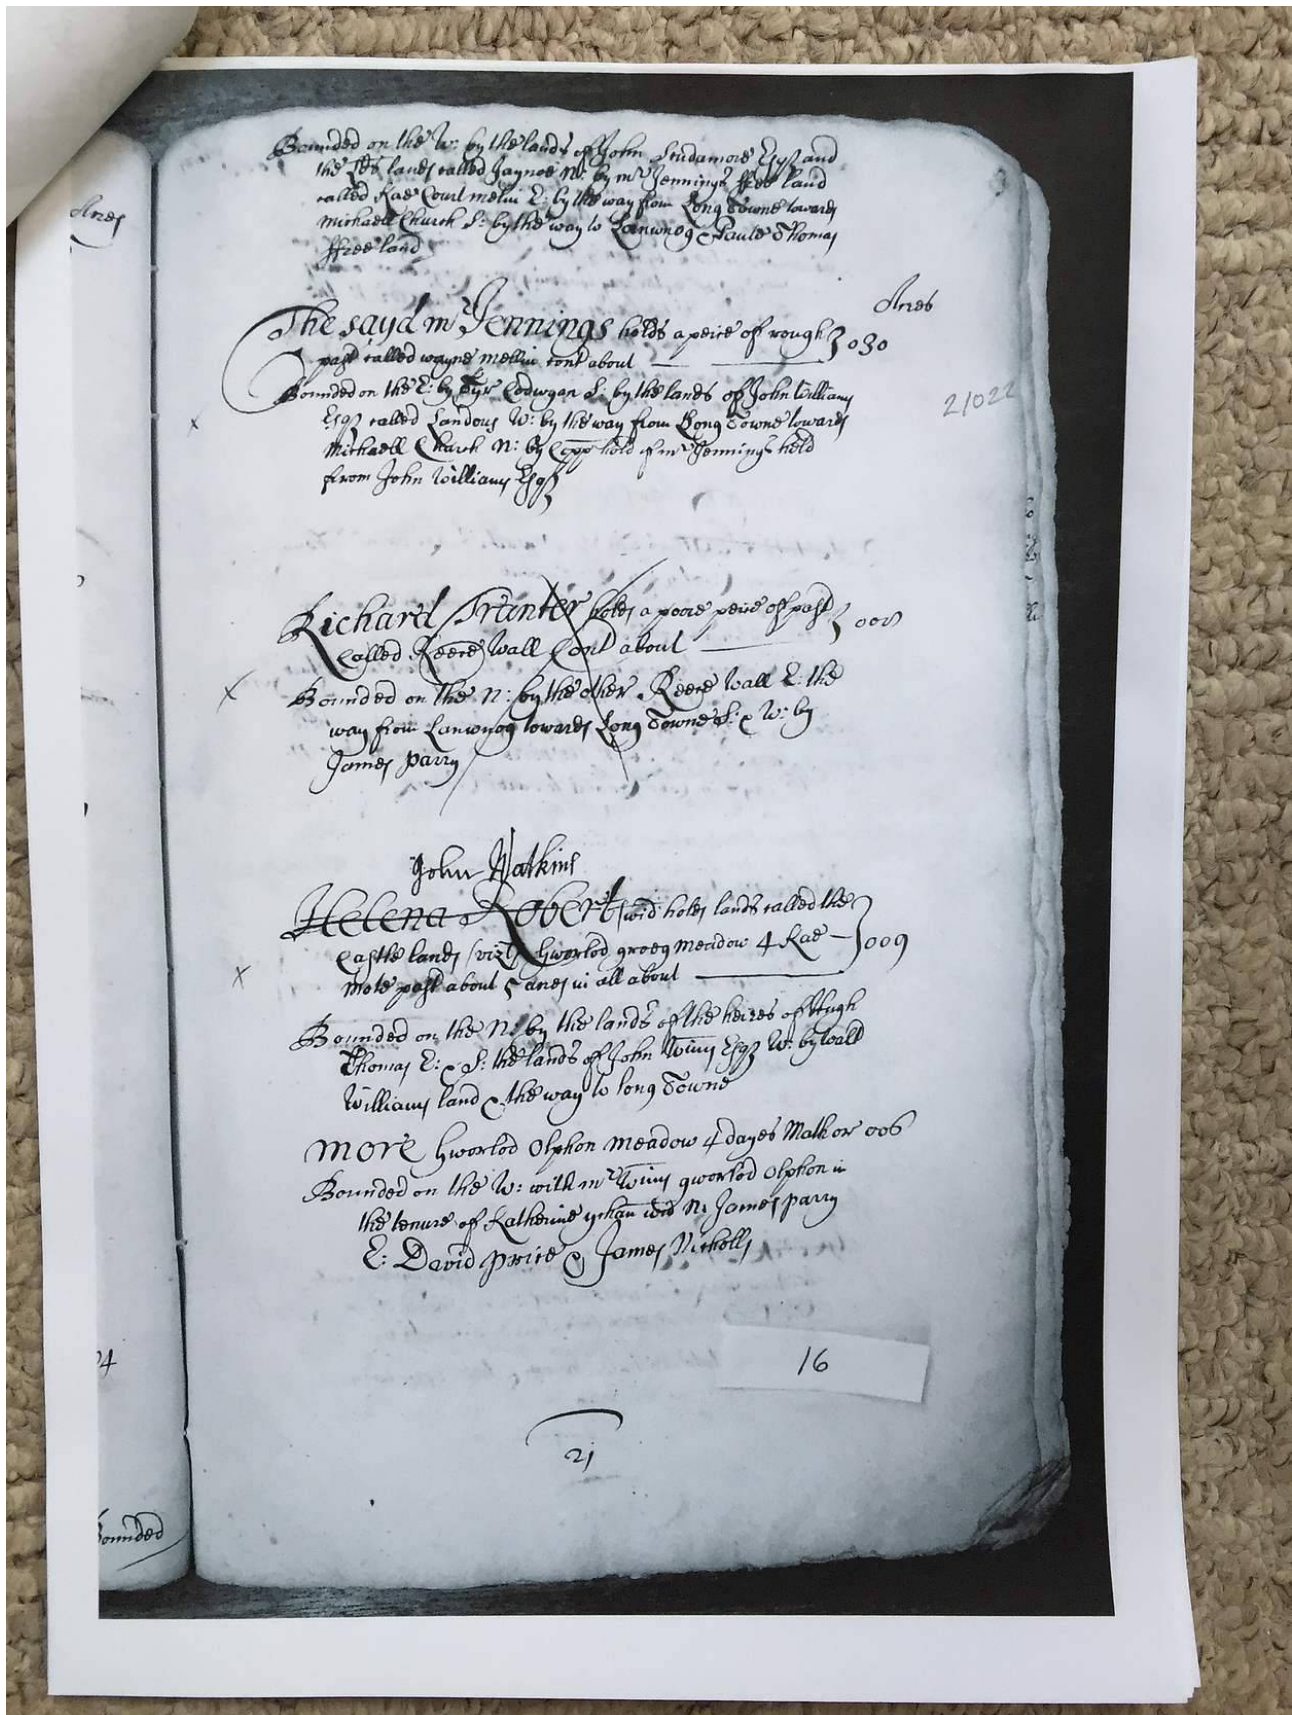 Bounded on the W: by the lands of John Scudamore Esqr and
the Lds lands called Jaynoe N: by mr Jennings ffree land
called Kae Court melin E: by the way from Long Towne towards
Michaell Church S: by the way to Lanwnog & Paule Thomas
ffree land
Acres
The sayd mr Jennings holds a peice of rough
past called wayne mellin cont about 030
Bounded on the E: by Tyr Cadwgan S: by the lands of John Williams
Esqr called Landous W: by the way from Long Towne towards
Michaell Church N: by Copp hold of mr Jennings held
from John Williams Esqr
21022
Richard Tranter holds a poore peice of past
Called Reece Wall Cont about 008
x Bounded on the N: by the other Reece Wall E: the
way from Lanwnog towards Long Towne S: & W: by
James Parry
John Watkins
Helena Robert wid holds lands called the
Castle lands (vizt) gworlod groeg meadow 4 Kae 009
x mote past about 5 acres in all about
Bounded on the N: by the lands of the heires of Hugh
Thomas E: & S: the lands of John Wms Esqr W: by Watt
Williams land & the way to long Towne
more gworlod Olphon meadow 4 dayes Math or 006
Bounded on the W: with mr Wms gworlod Olphon in
the tenure of Katherine wid N: James parry
E: David price & James Nicholls
16
21
Acres
04
Bounded